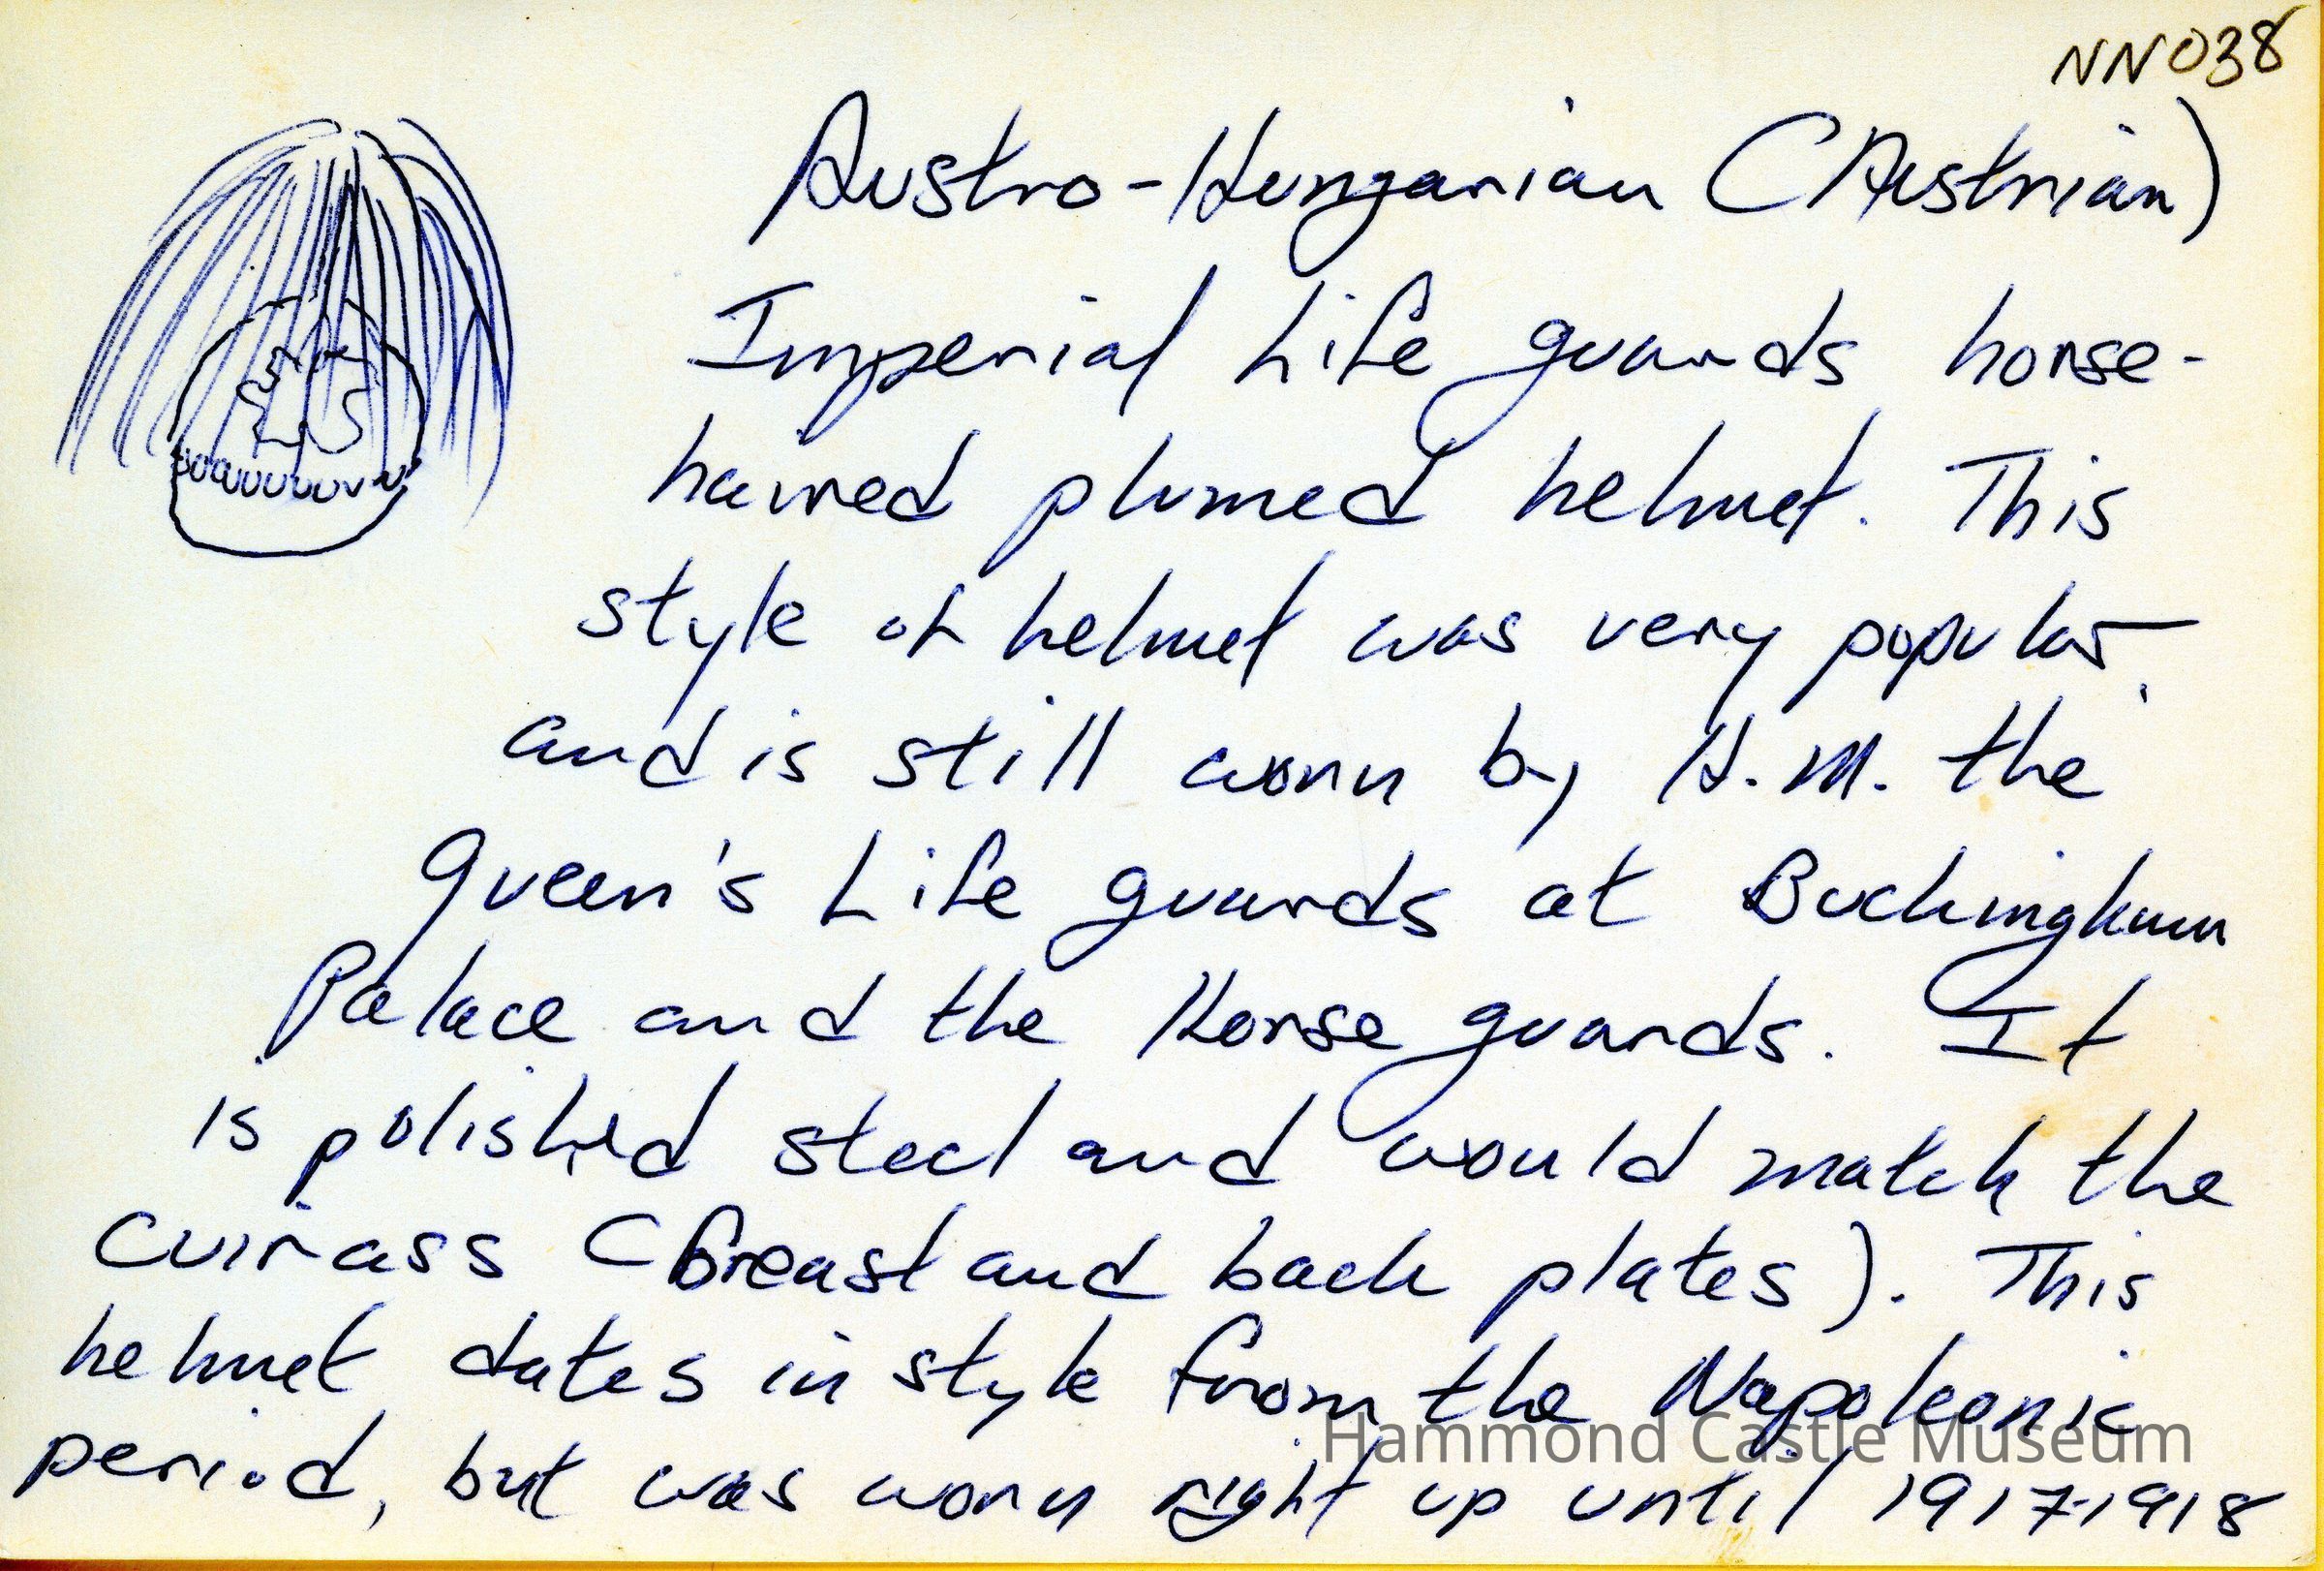 NN038
Austro-Hungarian (Austrian)
Imperial Life guards horse-
haired plumed helmet. This
style of helmet was very popular
and is still worn by H.M. the
Queen's Life guards at Buckingham
Palace and the Horse guards. It
is polished steel and would match the
cuirass (breast and back plates). This
helmet dates in style from the Napoleonic
Hammond Castle Museum
period, but was worn right up until 1917-1918